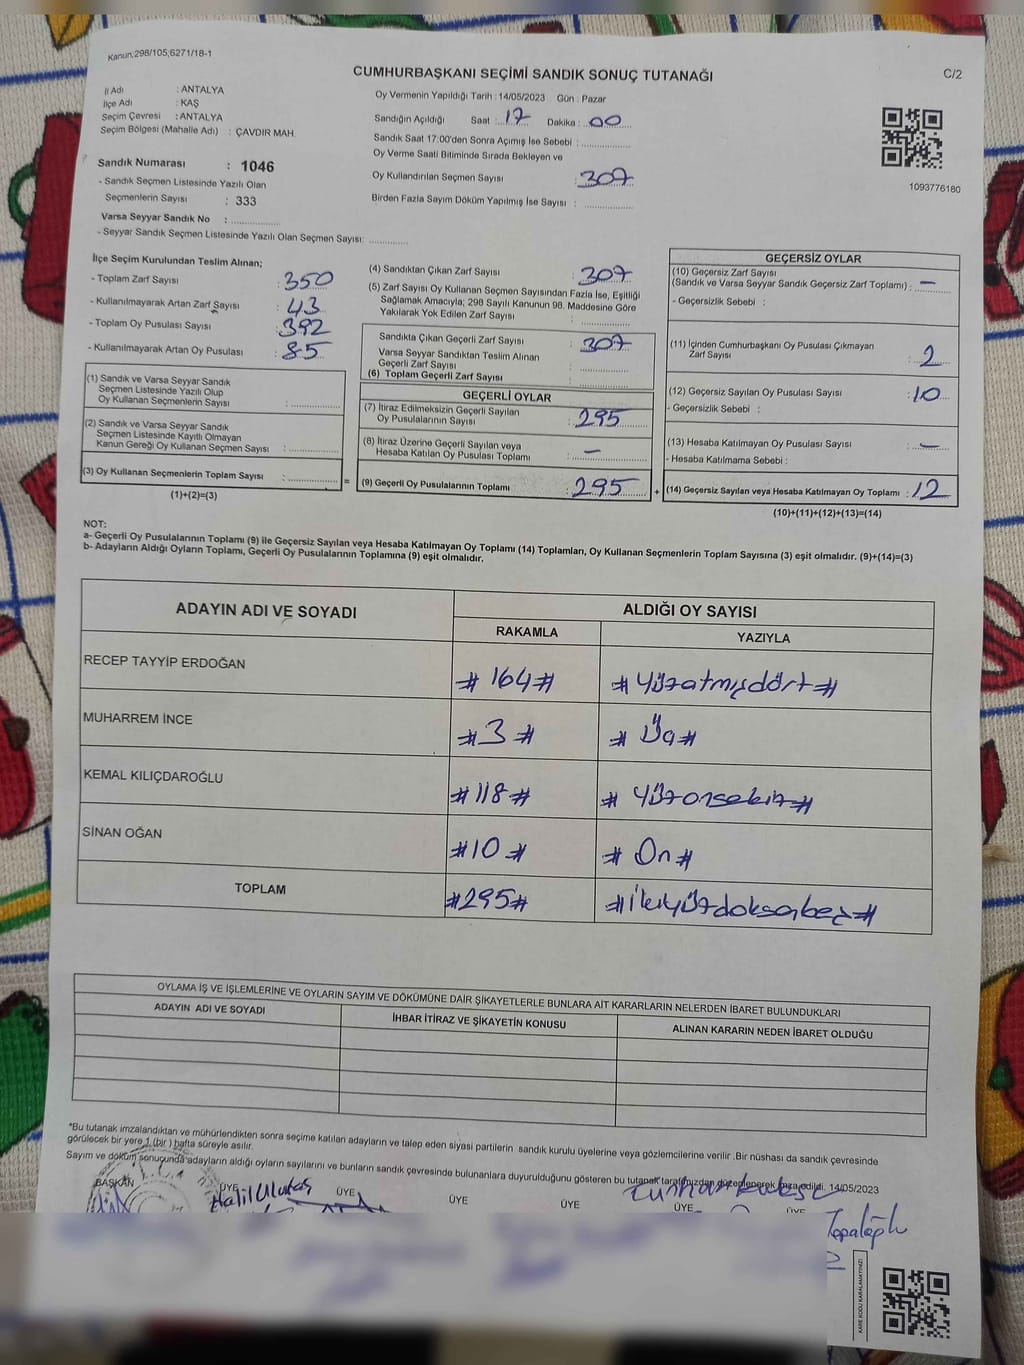 Kanun;298/105;6271/18-1
CUMHURBAŞKANI SEÇİMİ SANDIK SONUÇ TUTANAĞI
C/2
İl Adı : ANTALYA
İlçe Adı : KAŞ
Seçim Çevresi : ANTALYA
Seçim Bölgesi (Mahalle Adı) : ÇAVDIR MAH.
Sandık Numarası : 1046
- Sandık Seçmen Listesinde Yazılı Olan
Seçmenlerin Sayısı : 333
Varsa Seyyar Sandık No : ..............
- Seyyar Sandık Seçmen Listesinde Yazılı Olan Seçmen Sayısı: ...........
Oy Vermenin Yapıldığı Tarih : 14/05/2023 Gün : Pazar
Sandığın Açıldığı Saat : 17 Dakika : 00
Sandık Saat 17:00'den Sonra Açımış İse Sebebi : ..............
Oy Verme Saati Bitiminde Sırada Bekleyen ve
Oy Kullandırılan Seçmen Sayısı : 307
Birden Fazla Sayım Döküm Yapılmış İse Sayısı : ..............
1093776180
İlçe Seçim Kurulundan Teslim Alınan;
- Toplam Zarf Sayısı : 350
- Kullanılmayarak Artan Zarf Sayısı : 43
- Toplam Oy Pusulası Sayısı : 392
- Kullanılmayarak Artan Oy Pusulası : 85
(1) Sandık ve Varsa Seyyar Sandık
Seçmen Listesinde Yazılı Olup
Oy Kullanan Seçmenlerin Sayısı : ..............
(2) Sandık ve Varsa Seyyar Sandık
Seçmen Listesinde Kayıtlı Olmayan
Kanun Gereği Oy Kullanan Seçmen Sayısı : ..............
(3) Oy Kullanan Seçmenlerin Toplam Sayısı : .............. =
(1)+(2)=(3)
(4) Sandıktan Çıkan Zarf Sayısı : 307
(5) Zarf Sayısı Oy Kullanan Seçmen Sayısından Fazla İse, Eşitliği
Sağlamak Amacıyla; 298 Sayılı Kanunun 98. Maddesine Göre
Yakılarak Yok Edilen Zarf Sayısı : ..............
Sandıkta Çıkan Geçerli Zarf Sayısı : 307
Varsa Seyyar Sandıktan Teslim Alınan
Geçerli Zarf Sayısı : ..............
(6) Toplam Geçerli Zarf Sayısı : ..............
GEÇERLİ OYLAR
(7) İtiraz Edilmeksizin Geçerli Sayılan
Oy Pusulalarının Sayısı : 295
(8) İtiraz Üzerine Geçerli Sayılan veya
Hesaba Katılan Oy Pusulası Toplamı : —
(9) Geçerli Oy Pusulalarının Toplamı : 295 +
GEÇERSİZ OYLAR
(10) Geçersiz Zarf Sayısı
(Sandık ve Varsa Seyyar Sandık Geçersiz Zarf Toplamı) : —
- Geçersizlik Sebebi :
(11) İçinden Cumhurbaşkanı Oy Pusulası Çıkmayan
Zarf Sayısı : 2
(12) Geçersiz Sayılan Oy Pusulası Sayısı : 10
- Geçersizlik Sebebi :
(13) Hesaba Katılmayan Oy Pusulası Sayısı : —
- Hesaba Katılmama Sebebi :
(14) Geçersiz Sayılan veya Hesaba Katılmayan Oy Toplamı : 12
(10)+(11)+(12)+(13)=(14)
NOT:
a- Geçerli Oy Pusulalarının Toplamı (9) ile Geçersiz Sayılan veya Hesaba Katılmayan Oy Toplamı (14) Toplamları, Oy Kullanan Seçmenlerin Toplam Sayısına (3) eşit olmalıdır. (9)+(14)=(3)
b- Adayların Aldığı Oyların Toplamı, Geçerli Oy Pusulalarının Toplamına (9) eşit olmalıdır.
ADAYIN ADI VE SOYADI ALDIĞI OY SAYISI
RAKAMLA YAZIYLA
RECEP TAYYİP ERDOĞAN # 164 # # Yüzatmışdört #
MUHARREM İNCE # 3 # # Üç #
KEMAL KILIÇDAROĞLU # 118 # # Yüzonsekiz #
SİNAN OĞAN # 10 # # On #
TOPLAM # 295 # # İkiyüzdoksanbeş #
OYLAMA İŞ VE İŞLEMLERİNE VE OYLARIN SAYIM VE DÖKÜMÜNE DAİR ŞİKAYETLERLE BUNLARA AİT KARARLARIN NELERDEN İBARET BULUNDUKLARI
ADAYIN ADI VE SOYADI İHBAR İTİRAZ VE ŞİKAYETİN KONUSU ALINAN KARARIN NEDEN İBARET OLDUĞU
*Bu tutanak imzalandıktan ve mühürlendikten sonra seçime katılan adayların ve talep eden siyasi partilerin sandık kurulu üyelerine veya gözlemcilerine verilir .Bir nüshası da sandık çevresinde
görülecek bir yere 1 (bir ) hafta süreyle asılır.
Sayım ve döküm sonucunda adayların aldığı oyların sayılarını ve bunların sandık çevresinde bulunanlara duyurulduğunu gösteren bu tutanak tarafımızdan düzenlenerek imza edildi. 14/05/2023
BAŞKAN ÜYE ÜYE ÜYE ÜYE ÜYE ÜYE
Halil Ulutaş
Topaloğlu
KARE KODU KARALAMAYINIZ!